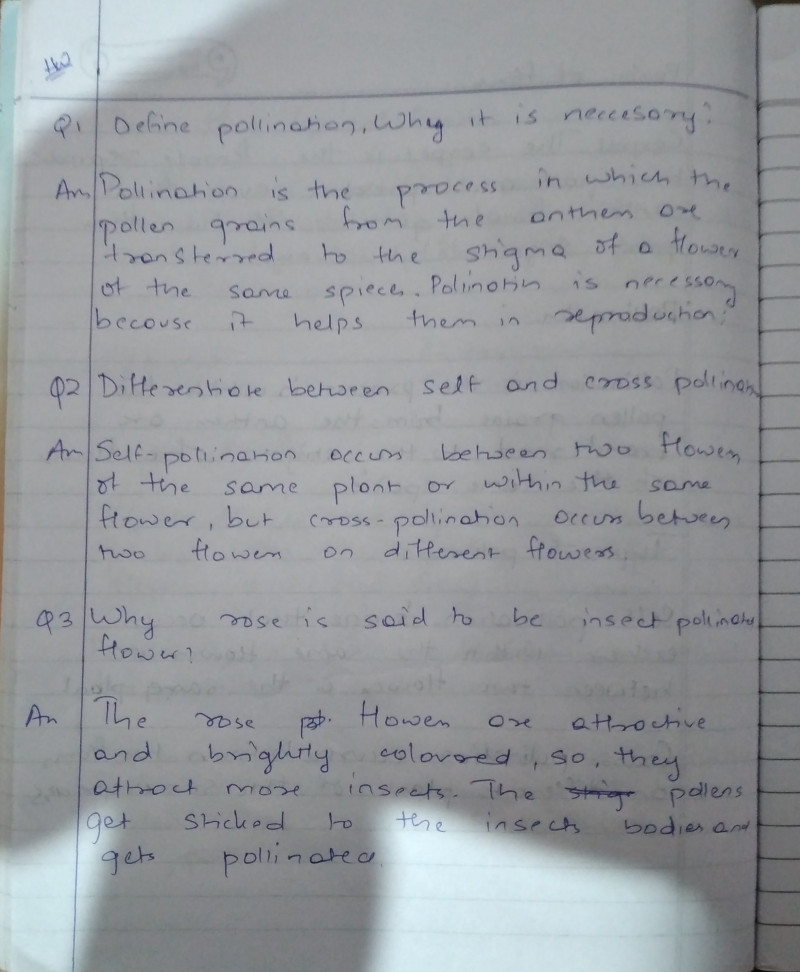 HW
Q1 Define pollination. Why it is neccesary?
Ans Pollination is the process in which the
pollen grains from the anthers are
transferred to the stigma of a flower
of the same spieces. Polination is necessary
because it helps them in reproduction.
Q2 Differentiate between self and cross pollination
Ans Self-pollination occurs between two flowers
of the same plant or within the same
flower, but cross-pollination occurs between
two flowers on different flowers.
Q3 Why rose is said to be insect pollinated
flower?
Ans The rose flowers are attractive
and brightly coloured, so, they
attract more insects. The pollens
get sticked to the insects bodies and
gets pollinated.